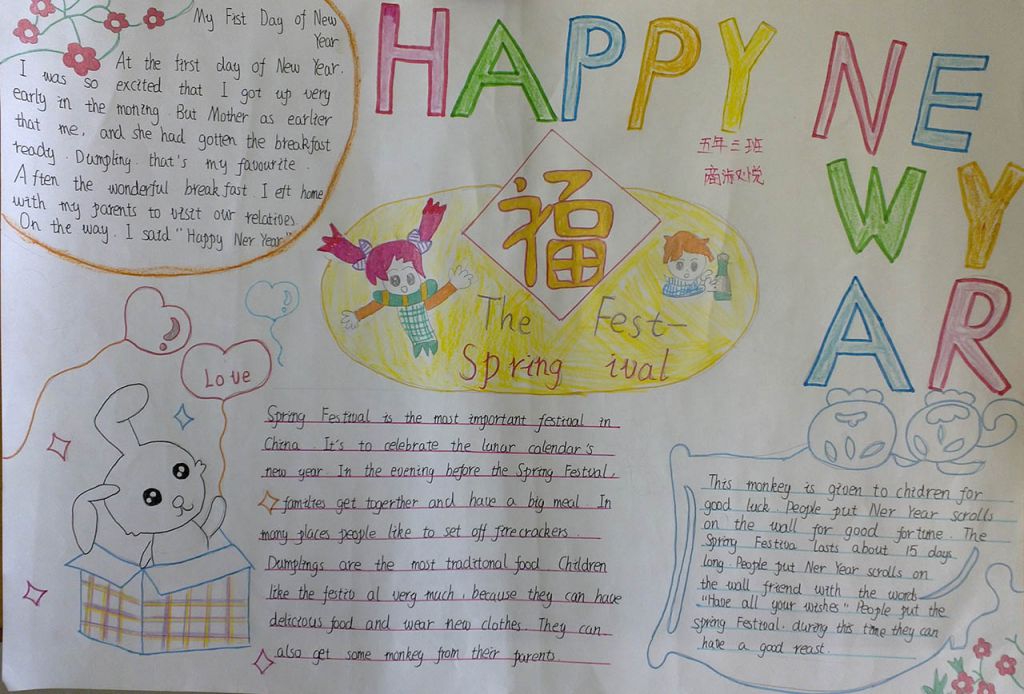 My Fist Day of New
Year
At the first day of New Year.
I was so excited that I got up very
early in the moning. But Mother as earlier
that me, and she had gotten the breakfast
ready. Dumpling. that's my favourite.
Aften the wonderful breakfast I eft home
with my parents to visit our relatives
On the way. I said "Happy Ner Year"
HAPPY NEW
YEAR
五年三班
福
The Fest-
Spring ival
Love
Spring Festival is the most important festival in
China. It's to celebrate the lunar calendar's
new year. In the evening before the Spring Festval,
families get togerther and have a big meal In
many places people like to set off firecrackers.
Dumplings are the most traditonal food Children
like the festiv al verg much, because they can have
delicious food and wear new clothes. They can
also get some monkey from their parents
This monkey is given to chidren for
good luck. People put Ner Year scrolls
on the wall for good fortime. The
Spring Festiva lasts about 15 days
long. People put Ner Year scrolls on
the wall friend with the words
"Have all your wishes" People put the
spring Festival. during this time they can
have a good reast.